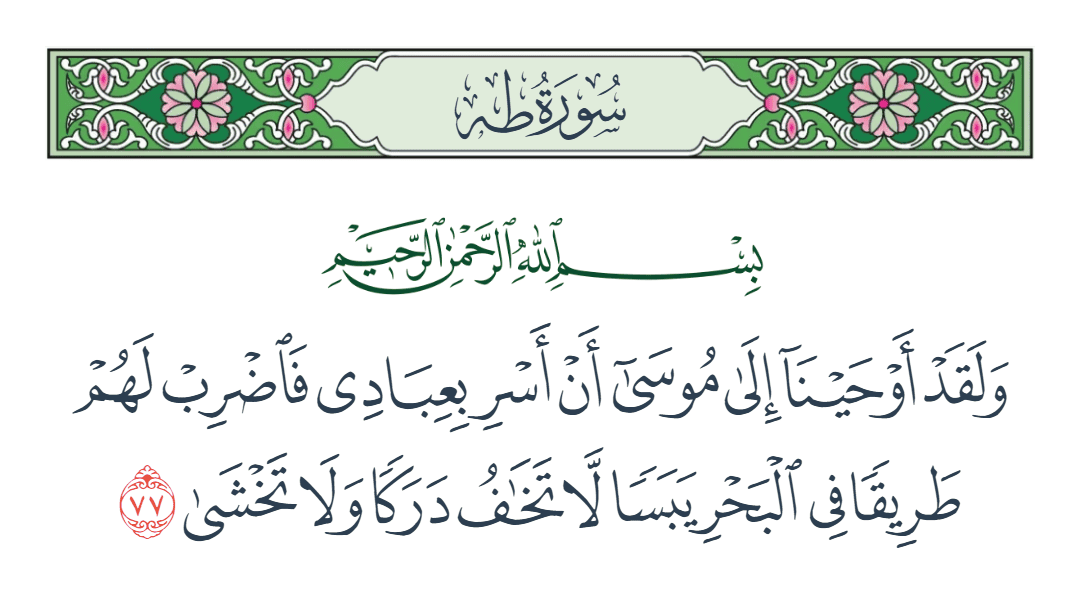 سُورَةُ طه
بِسْمِ ٱللَّهِ ٱلرَّحْمَٰنِ ٱلرَّحِيمِ
وَلَقَدْ أَوْحَيْنَآ إِلَىٰ مُوسَىٰٓ أَنْ أَسْرِ بِعِبَادِى فَٱضْرِبْ لَهُمْ
طَرِيقًا فِى ٱلْبَحْرِ يَبَسًا لَّا تَخَٰفُ دَرَكًا وَلَا تَخْشَىٰ ٧٧